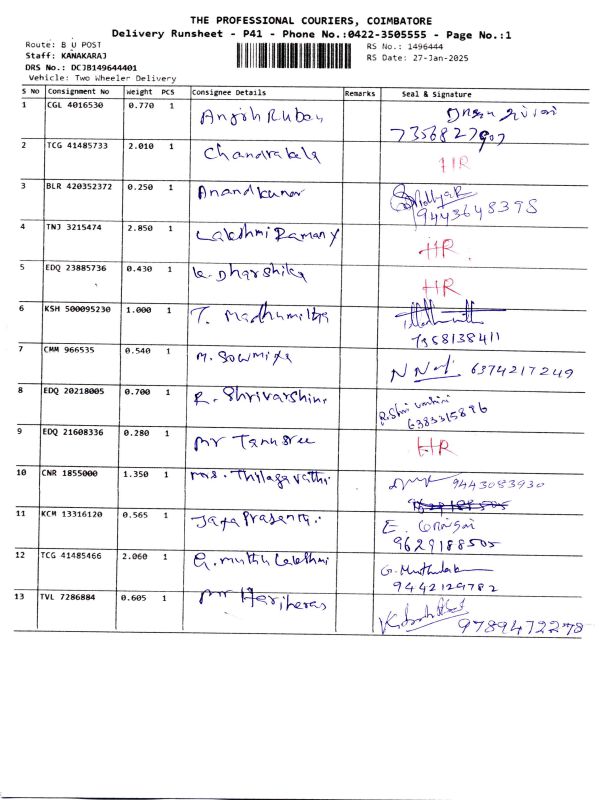 THE PROFESSIONAL COURIERS, COIMBATORE
Delivery Runsheet - P41 - Phone No.:0422-3505555 - Page No.:1
Route: B U POST
RS No.: 1496444
Staff: KANAKARAJ
RS Date: 27-Jan-2025
DRS No.: DCJB149644401
Vehicle: Two Wheeler Delivery
S No Consignment No Weight PCS Consignee Details Remarks Seal & Signature
1 CGL 4016530 0.770 1 Anjish Ruben
7356827907
2 TCG 41485733 2.010 1 Chandrakela HR
3 BLR 420352372 0.250 1 Anandkumar
9443648395
4 TNJ 3215474 2.850 1 Lakshmi Ramany HR
5 EDQ 23885736 0.430 1 K. Dharshika HR
6 KSH 500095230 1.000 1 T. Madhumitha
7358138411
7 CMM 966535 0.540 1 M. Sowmiya 6374217249
8 EDQ 20218005 0.700 1 R. Shrivarshini R.Shri varshini
6383315896
9 EDQ 21608336 0.280 1 Mr Tanusree HR
10 CNR 1855000 1.350 1 Mrs. Thilagavathi 9443083930
11 KCM 13316120 0.565 1 Jaya Prasanna. E.
9629188505
12 TCG 41485466 2.060 1 G. Muthu Lakshmi G. Muthulak
9442129782
13 TVL 7286884 0.605 1 Mr Hariharas
9789472278